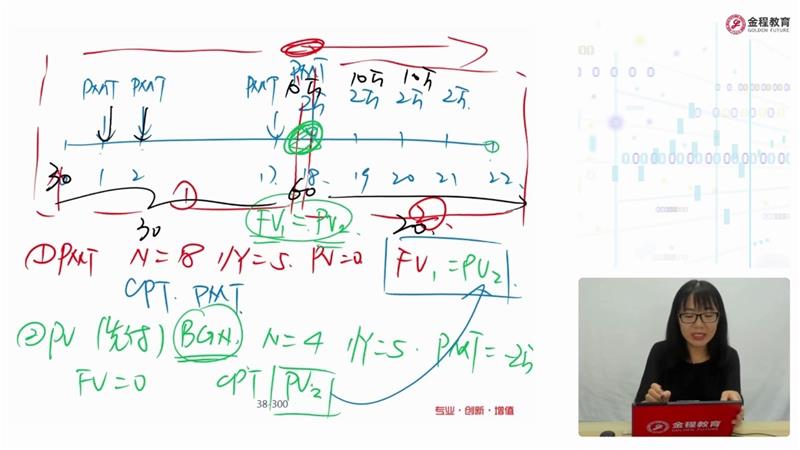 金程教育
GOLDEN FUTURE
PMT PMT PMT PMT 10万 10万
2万 2万 2万 2万
0 1 2 17 18 19 20 21 22
30 60
① ②
30 20
FV₁=PV₂
①PMT N=18 I/Y=5. PV=0 FV₁=PV₂
CPT. PMT.
②PV (先付) BGN. N=4 I/Y=5. PMT=-2万
FV=0 CPT PV₂
38-300
专业·创新·增值
金程教育
GOLDEN FUTURE